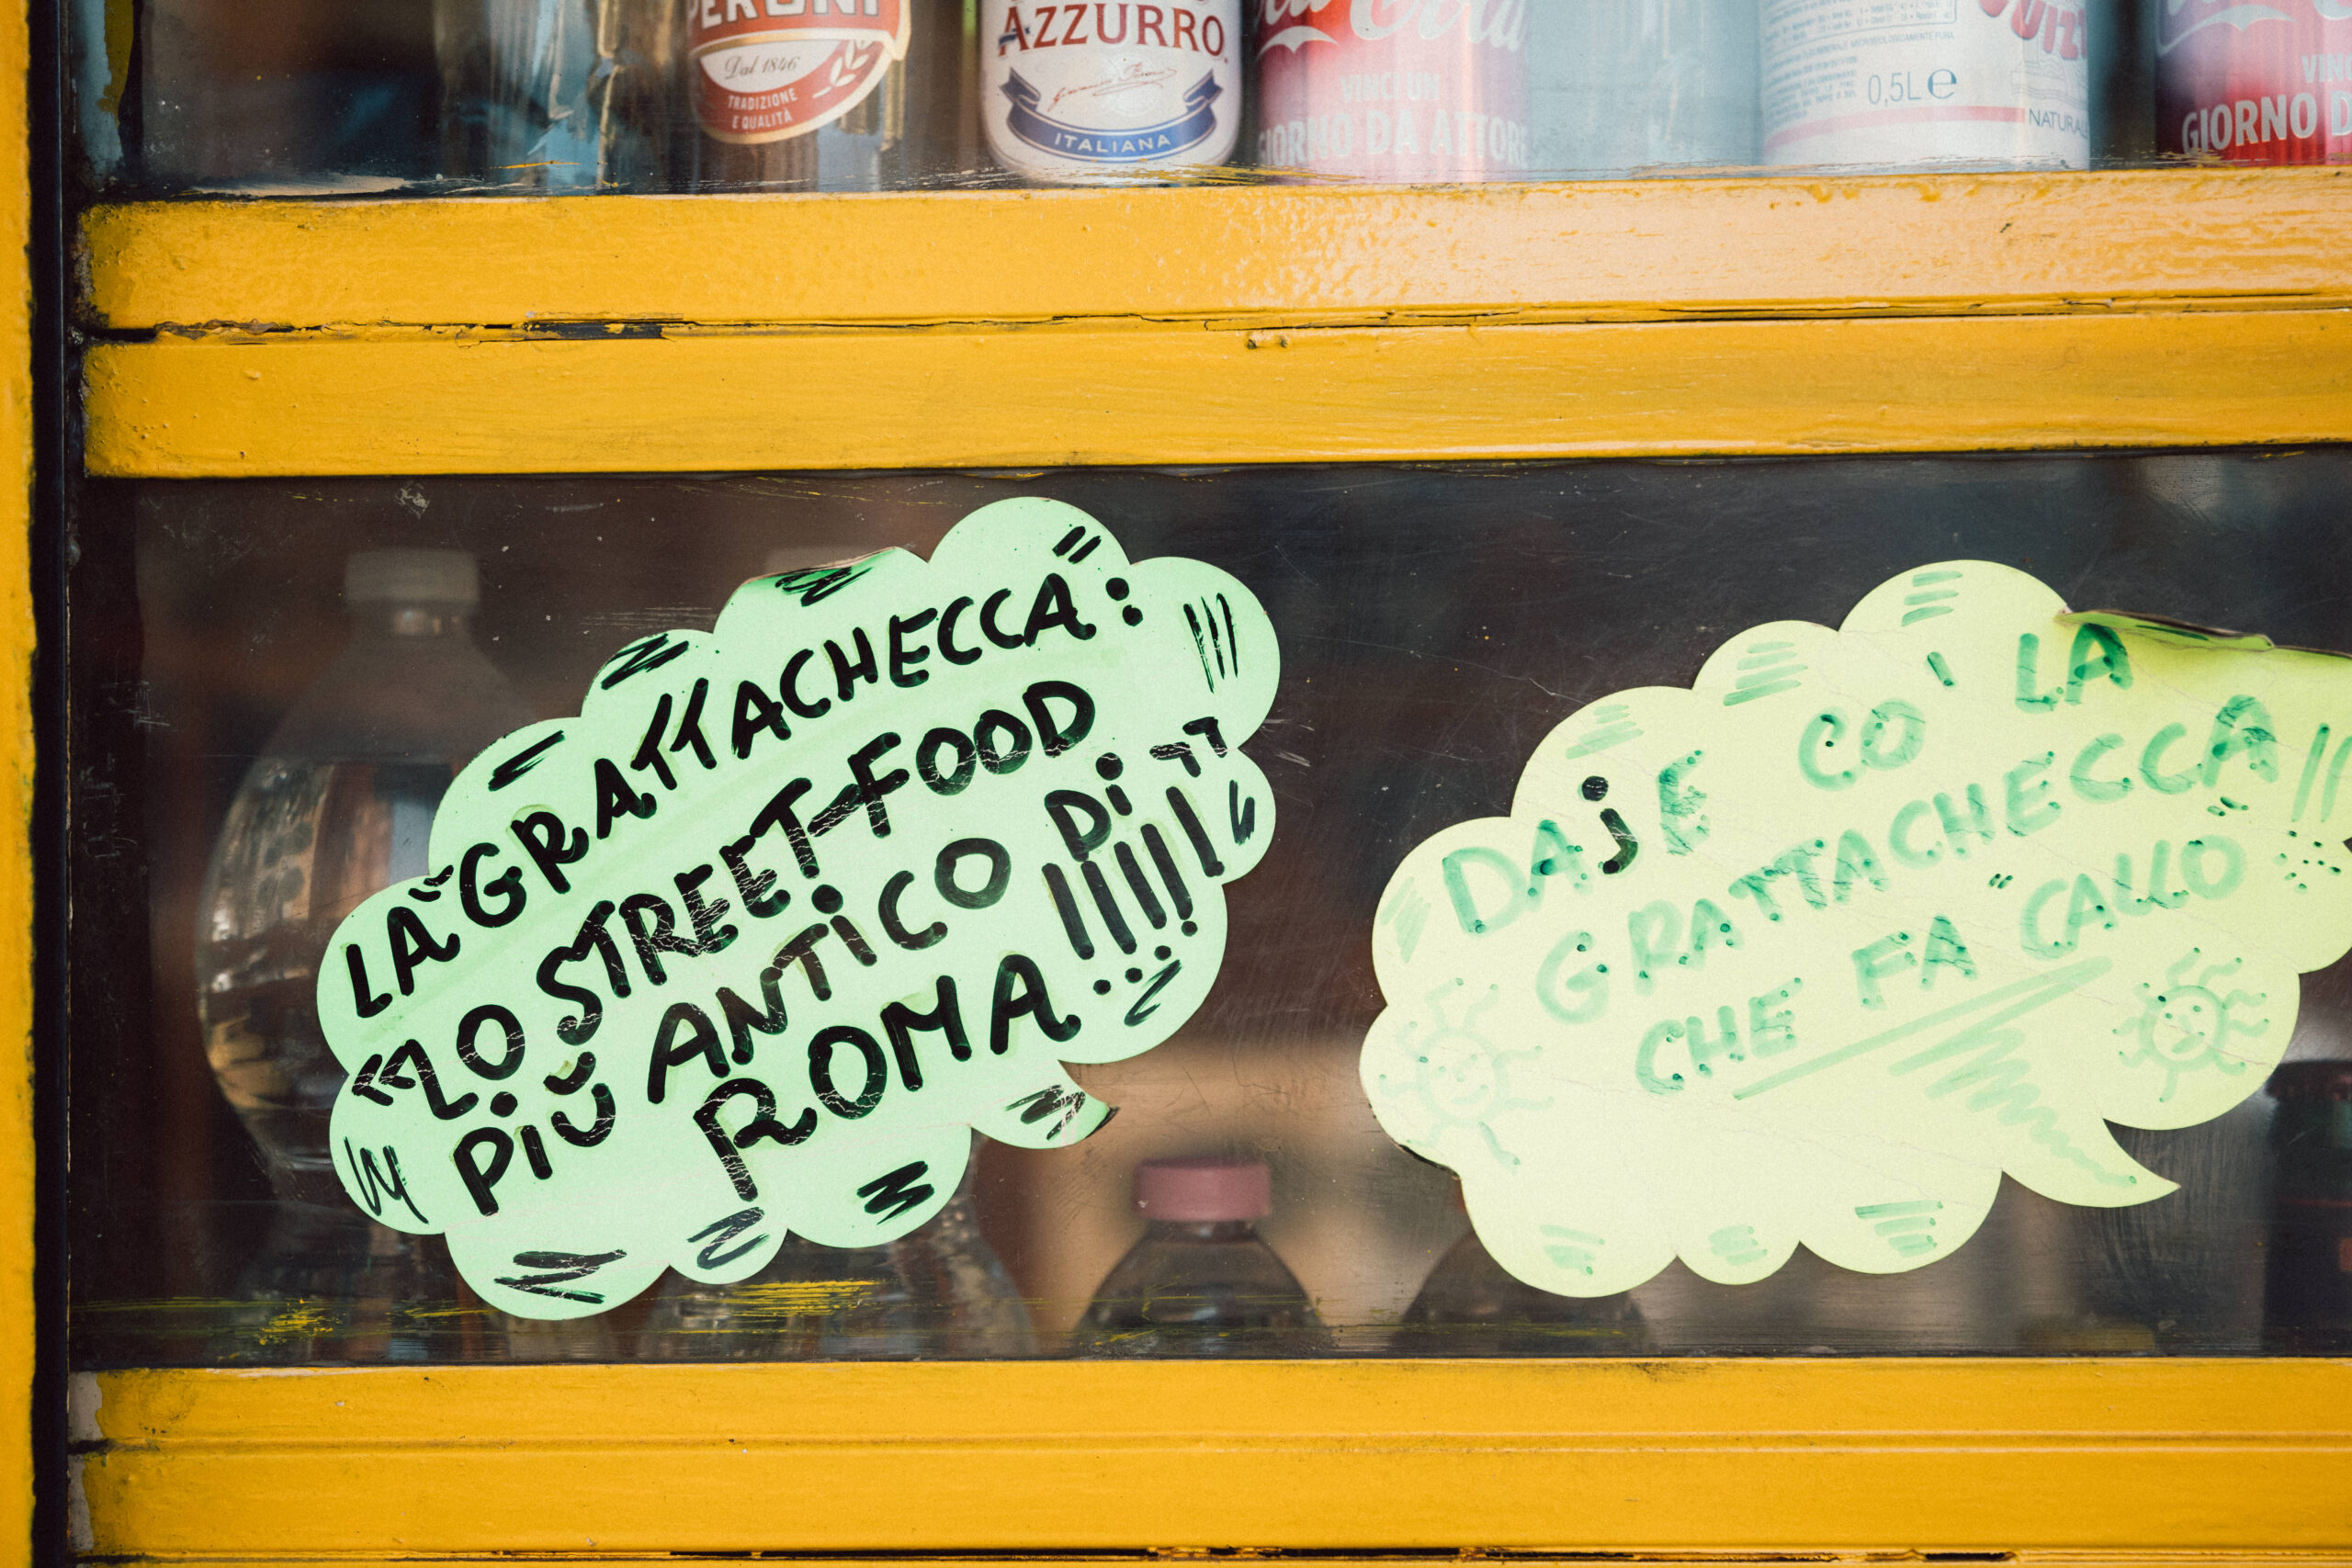 PERONI
Dal 1846
TRADIZIONE
E QUALITÀ
AZZURRO
ITALIANA
Coca-Cola
VINCI UN
GIORNO DA ATTORE
0,5L e
NATURALE
VINC
GIORNO D
LA "GRATTACHECCA":
"LO STREET-FOOD
PIÙ ANTICO DI"
ROMA!!!!
DAJE CO' LA
GRATTACHECCA
CHE FA "CALLO"